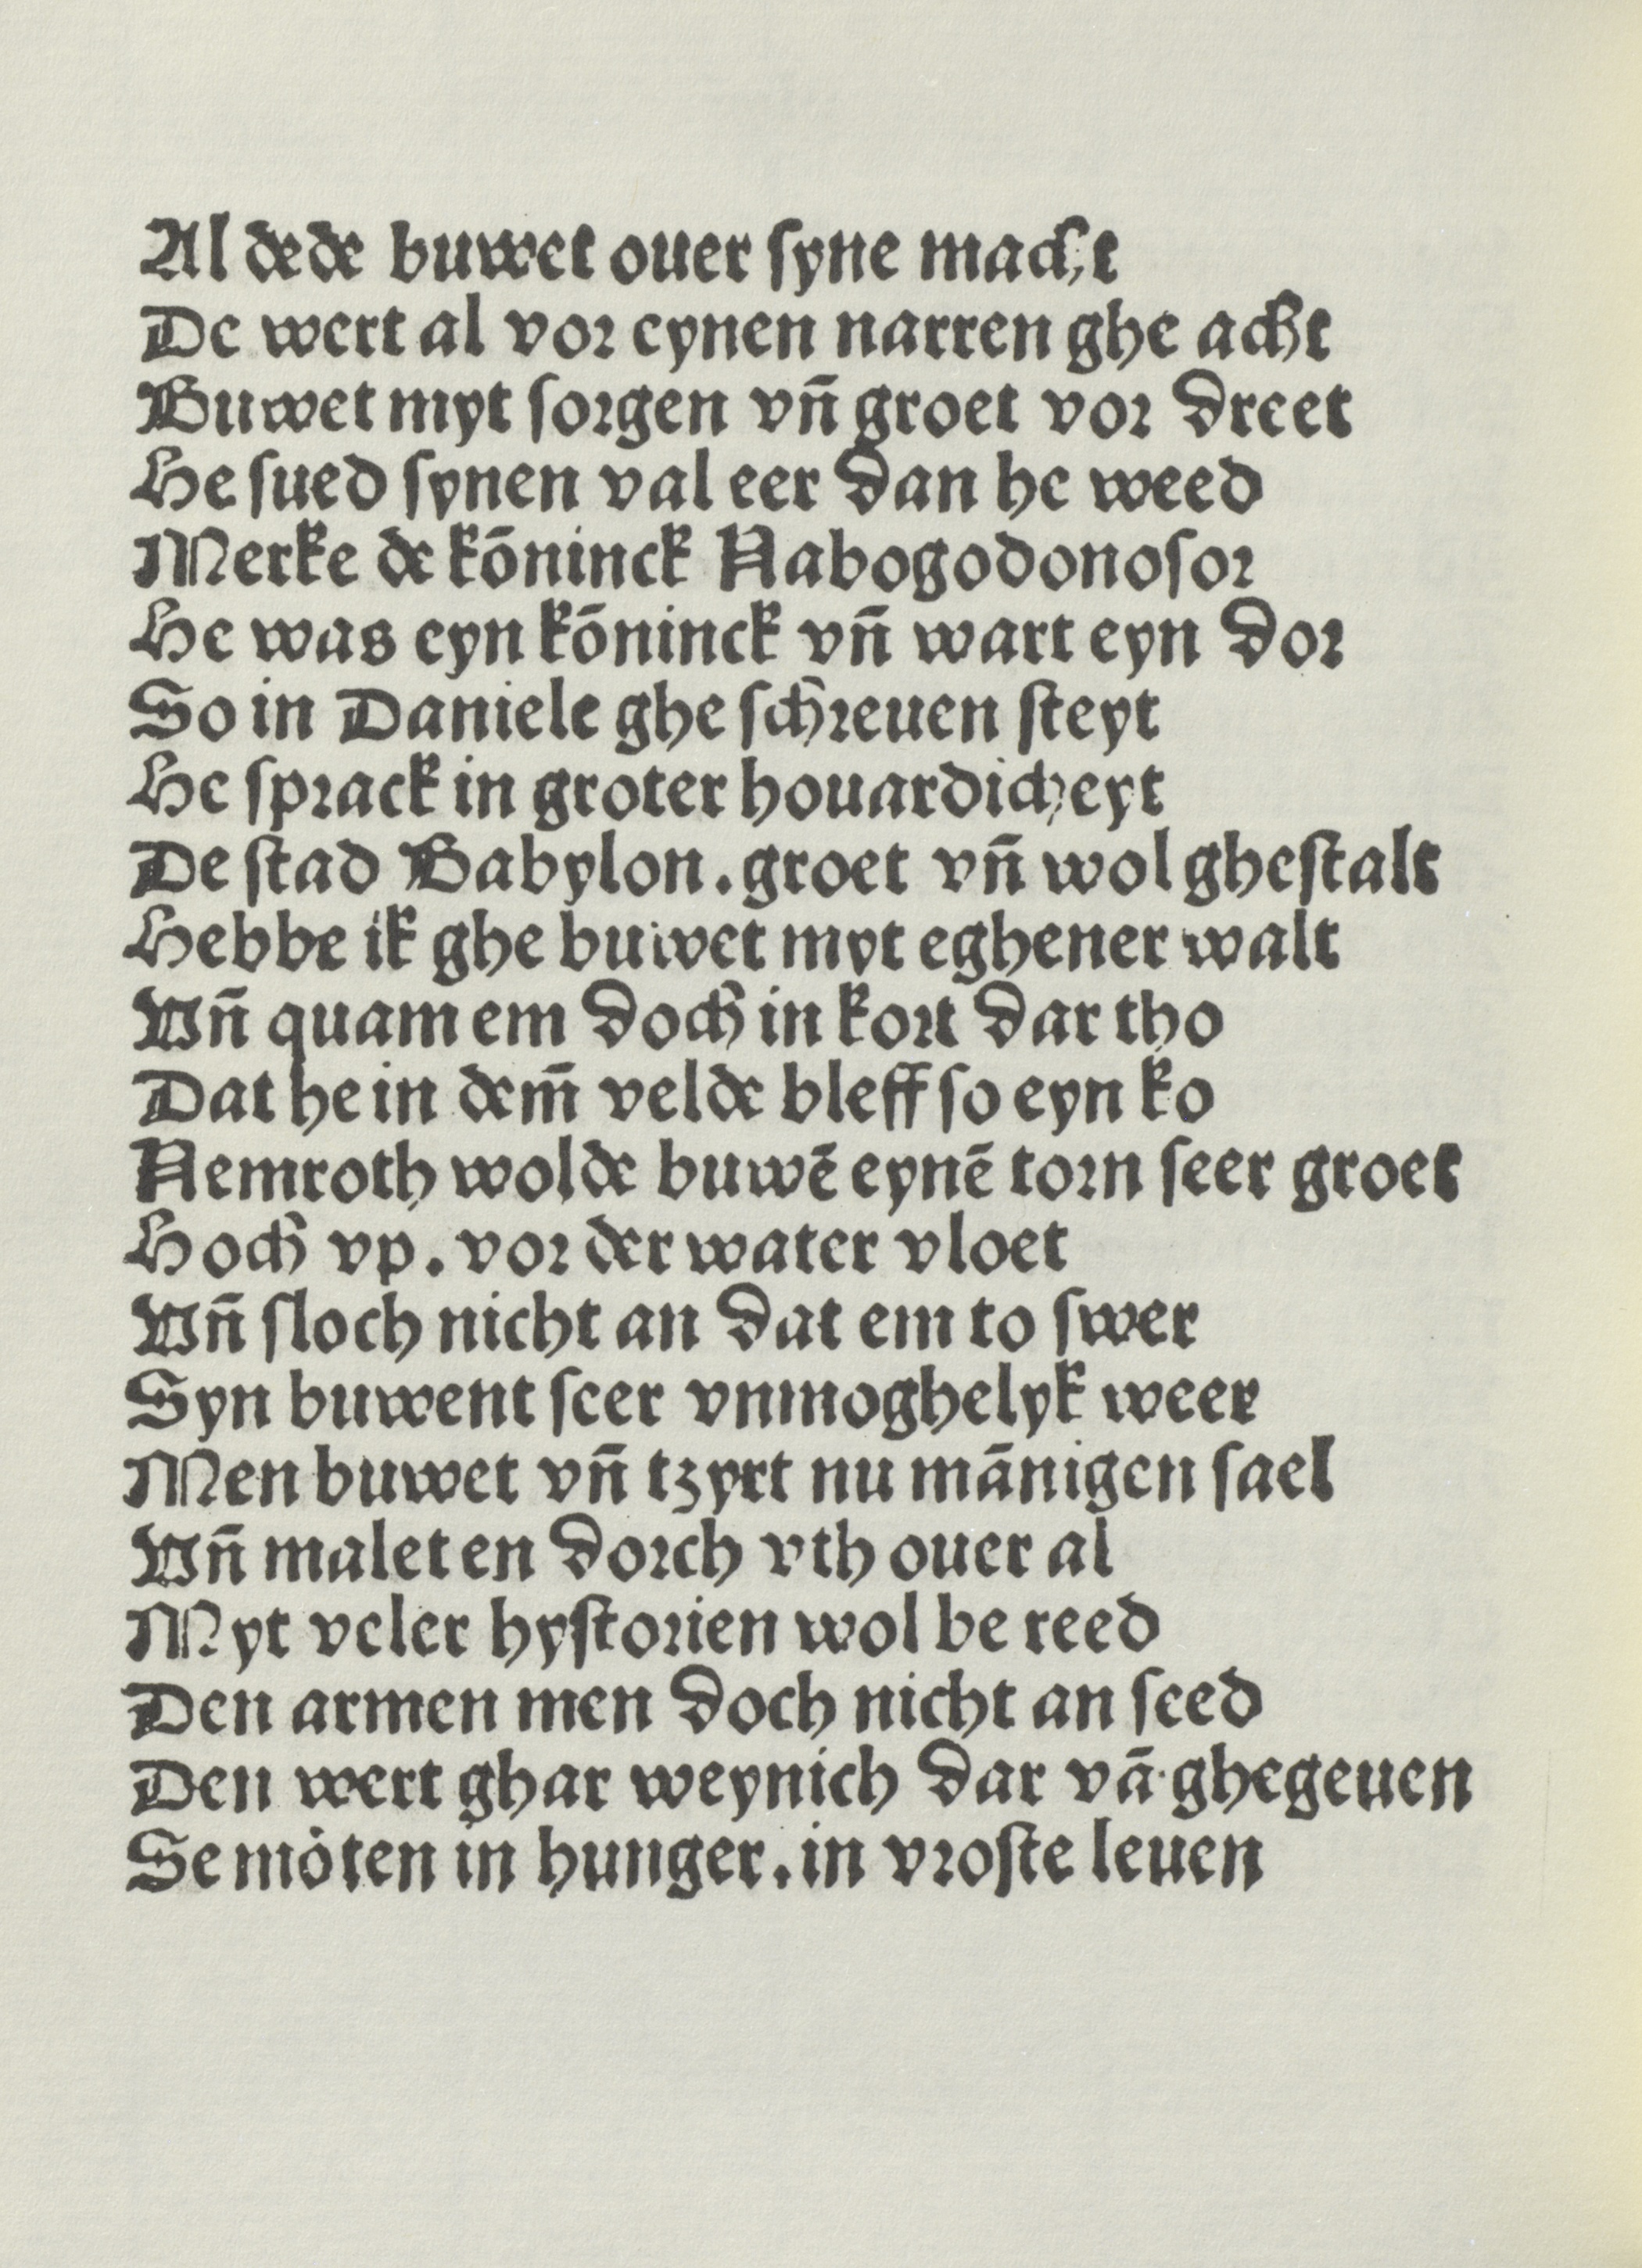 Al dede buwet ouer ſyne macht
De wert al vor eynen narren ghe acht
Buwet myt ſorgen vn̄ groet vor dreet
He ſued ſynen val eer dan he weed
Merke de kōninck Nabogodonoſor
He was eyn kōninck vn̄ wart eyn dor
So in Daniele ghe ſchreuen ſteyt
He ſprack in groter houardicheyt
De ſtad Babylon. groet vn̄ wol gheſtalt
Hebbe ik ghe buwet myt eghener walt
Vn̄ quam em doch in kort dar tho
Dat he in dem̄ velde bleff ſo eyn ko
Nemroth wolde buwē eynē torn ſeer groet
Hoch vp. vor der water vloet
Vn̄ ſloch nicht an dat em to ſwer
Syn buwent ſeer vnmoghelyk weer
Men buwet vn̄ tzyrt nu mānigen ſael
Vn̄ malet en dorch vth ouer al
Myt veler hyſtorien wol be reed
Den armen men doch nicht an ſeed
Den wert ghar weynich dar vā ghegeuen
Se mȯten in hunger. in vroſte leuen